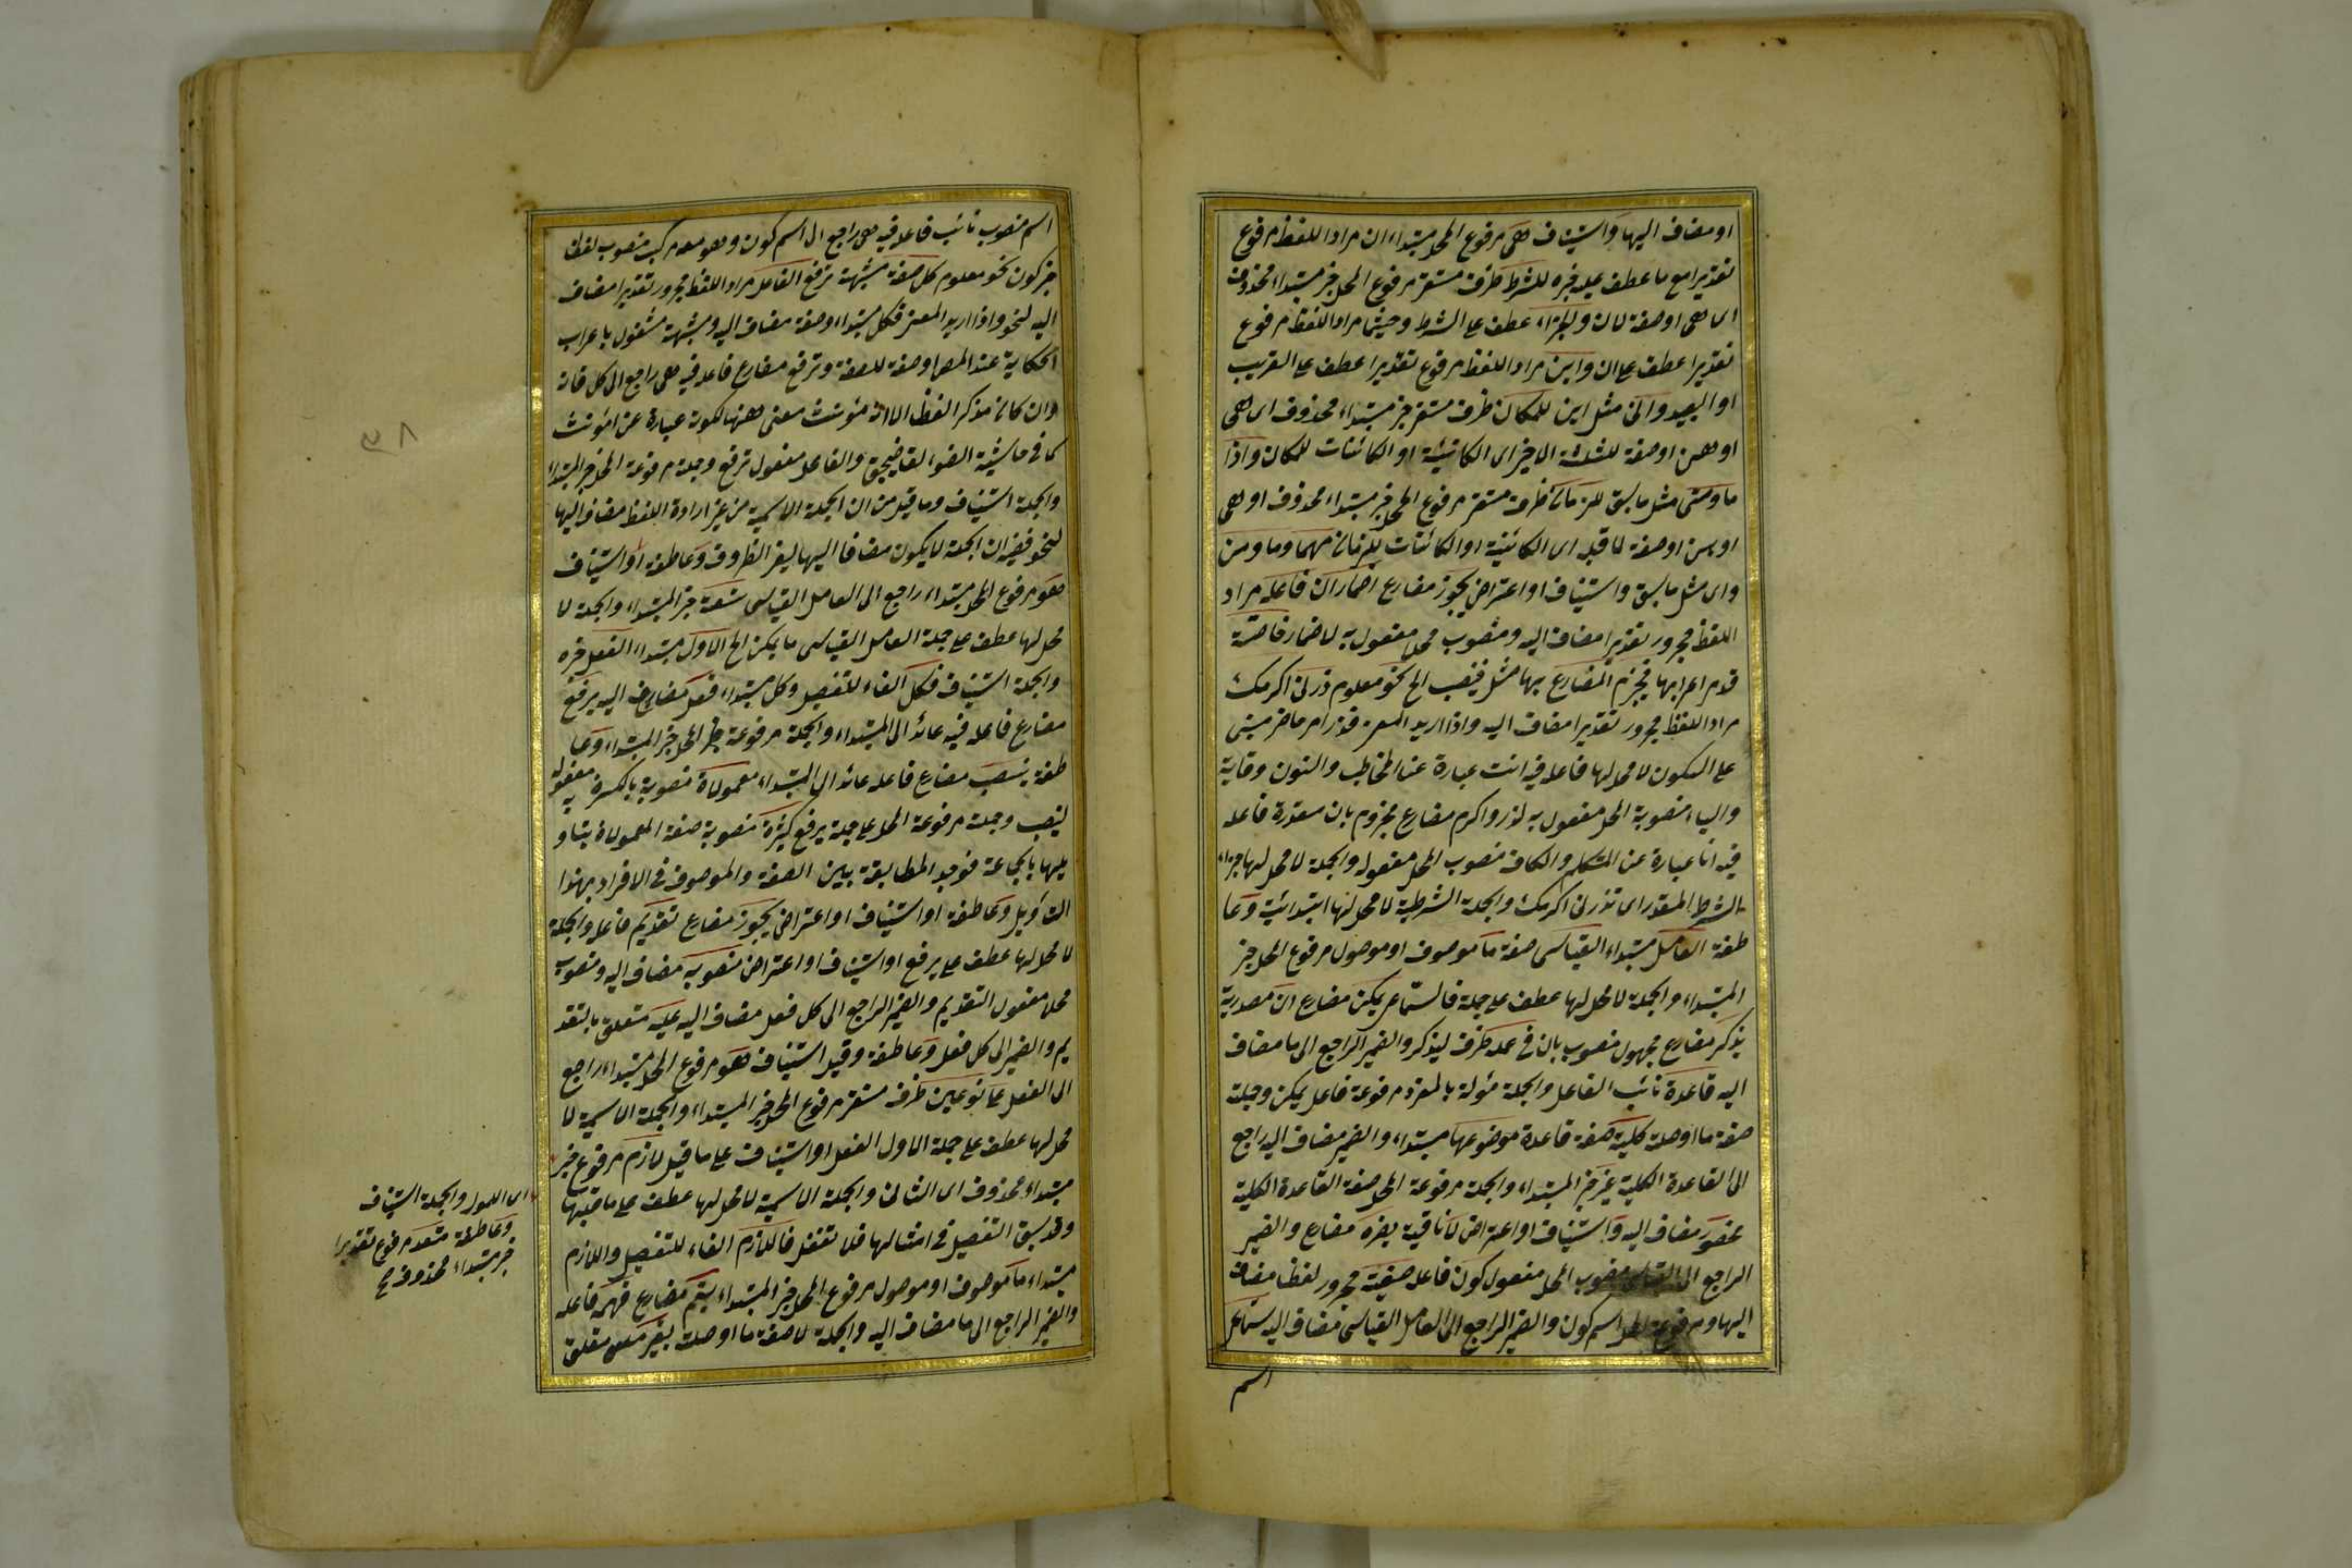 او مضاف اليها واستيناف هى مرفوع المحل مبتداء ان مراد اللفظ مرفوع
تقديرا مع ما عطف عليه خبره للشرط ظرف مستقر مرفوع المحل خبر مبتداء محذوف
اى هى او صفة لان وللجزاء عطف على الشرط وحيثما مراد اللفظ مرفوع
تقديرا عطف على ان واين مراد اللفظ مرفوع تقديرا عطف على القريب
او البعيد وانى مثل اين للمكان ظرف مستقر خبر مبتداء محذوف اى هى
او هن او صفة للثلثة الاخير اى الكائنة او الكائنات للمكان واذا
ما ومتى مثل ما سبق للزمان ظرف مستقر مرفوع المحل خبر مبتداء محذوف او هى
او هن او صفة لما قبله اى الكائنة او الكائنات للزمان مهما وما ومن
واى مثل ما سبق واستيناف او اعتراض يجوز مضارع اضمار ان فاعله مراد
اللفظ مجرور تقديرا مضاف اليه ومنصوب محلا مفعول به لاضمار خاصة
قدم اعرابها فيجزم المضارع بها مثل فينصب الخ نحو معلوم زرنى اكرمك
مراد اللفظ مجرور تقديرا مضاف اليه واذا اريد المعنى فزر امر حاضر مبنى
على السكون لا محل لها فاعله فيه انت عبارة عن المخاطب والنون وقاية
والياء منصوبة المحل مفعول به لزر واكرم مضارع مجزوم بان مقدرة فاعله
فيه انا عبارة عن المتكلم والكاف منصوب المحل مفعوله والجملة لا محل لها جزاء
الشرط المقدر اى تزرنى اكرمك والجملة الشرطية لا محل لها ابتدائية وعا
طفة العامل مبتداء القياسى صفة ما موصوف او موصول مرفوع المحل خبر
المبتداء والجملة لا محل لها عطف على جملة فالسماعى يمكن مضارع ان مصدرية
يذكر مضارع مجهول منصوب بان فى عمله ظرف ليذكر والضمير الراجع الى ما مضاف
اليه قاعدة نائب الفاعل والجملة مؤلة بالمفرد مرفوعة فاعل يمكن وجملة
صفة ما او صلة كلية صفة قاعدة موضوعها مبتداء والضمير مضاف اليه راجع
الى القاعدة الكلية غير خبر المبتداء والجملة مرفوعة المحل صفة القاعدة الكلية
محصور مضاف اليه واستيناف او اعتراض لا نافية يضره مضارع والضمير
الراجع الى القياسى منصوب المحل مفعول كون فاعله صيغته مجرور لفظا مضاف
اليها ومرفوعة المحل اسم كون والضمير الراجع الى العامل القياسى مضاف اليه سماعى
اسم
اسم منصوب نائب فاعله فيه هى راجع الى اسم كون وهو معه مركب منصوب لفظا
خبر كون نحو معلوم كل صفة مشبهة ترفع الفاعل مراد اللفظ مجرور تقديرا مضاف
اليه لنحو واذا اريد المعنى فكل مبتداء وصفة مضاف اليه ومشبهة مشغول باعراب
الحكاية عند المص او صفة للصفة وترفع مضارع فاعله فيه هى راجع الى كل فانه
وان كان مذكرا لفظا الا انه مؤنث معنى ههنا لكونه عبارة عن المؤنث
كما فى حاشية الضوء لقاضيجق والفاعل مفعول ترفع وجملة مرفوعة المحل خبر المبتداء
والجملة استيناف وما قيل من ان الجملة الاسمية من غير ارادة اللفظ مضاف اليها
لنحو ففيه ان الجملة لا يكون مضافا اليها لغير الظروف وعاطفة او استيناف
هو مرفوع المحل مبتداء راجع الى العامل القياسى تسعة خبر المبتداء والجملة لا
محل لها عطف على جملة العامل القياسى ما يمكن الخ الاول مبتداء الفعل خبره
والجملة استيناف فكل الفاء للتفصيل وكل مبتداء فعل مضاف اليه يرفع
مضارع فاعله فيه عائد الى المبتداء والجملة مرفوعة المحل خبر المبتداء وعا
طفة ينصب مضارع فاعله عائد الى المبتداء معمولاة منصوبة بالكسرة مفعول به
لينصب وجملة مرفوعة المحل على جملة يرفع كثيرة منصوبة صفة المعمولاة بتاو
يلها بالجماعة فوجد المطابقة بين الصفة والموصوف فى الافراد بهذا
التاويل وعاطفة او استيناف او اعتراض يجوز مضارع تقديم فاعله والجملة
لا محل لها عطف على يرفع او استيناف او اعتراض منصوبه مضاف اليه ومنصوب
محلا مفعول التقديم والضمير الراجع الى كل فعل مضاف اليه عليه متعلق بالتقد
يم والضمير الى كل فعل وعاطفة وقيل استيناف هو مرفوع المحل مبتداء راجع
الى الفعل على نوعين ظرف مستقر مرفوع المحل خبر المبتداء والجملة الاسمية لا
محل لها عطف على جملة الاول الفعل او استيناف على ما قيل لازم مرفوع خبر
مبتداء محذوف اى الثانى والجملة الاسمية لا محل لها عطف على ما قبلها
وقد سبق التفصيل فى امثالها فلا تغفل فاللازم الفاء للتفصيل واللازم
مبتداء ما موصوف او موصول مرفوع المحل خبر المبتداء يتم مضارع فهمه فاعله
والضمير الراجع الى ما مضاف اليه والجملة لا صفة ما او صلة بغير معلق متعلق
اى الاول والجملة استيناف
وعاطفة متعد مرفوع تقديرا
خبر مبتداء محذوف صح